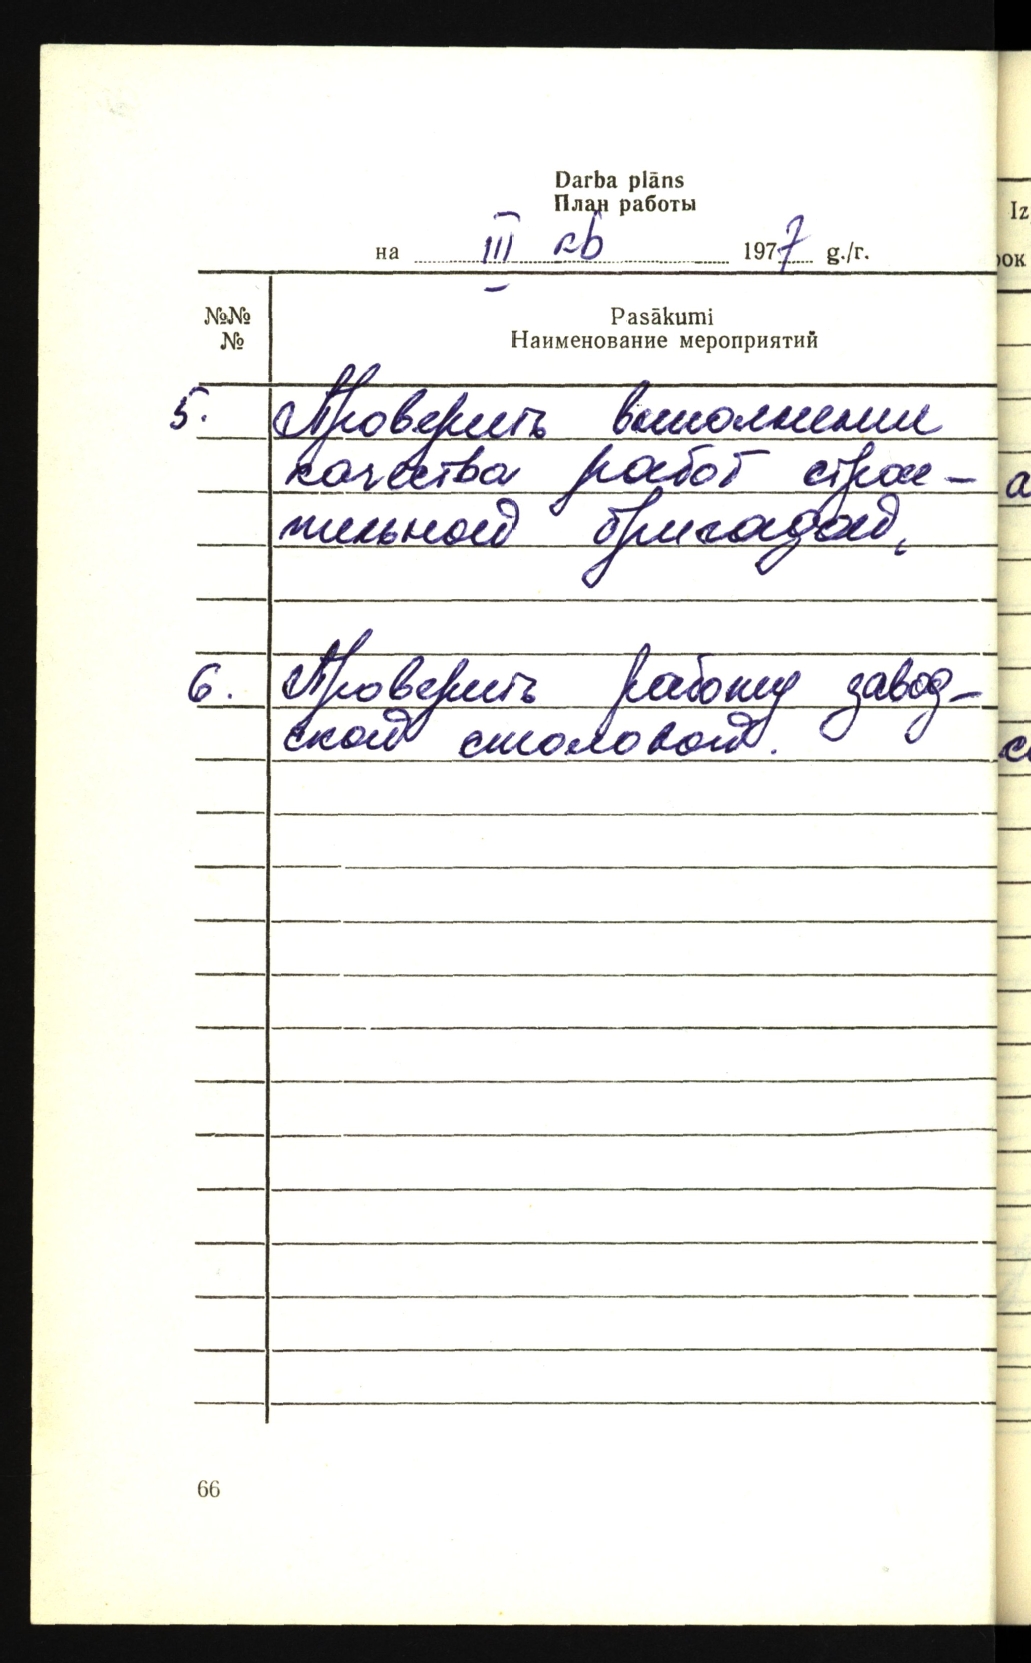 Darba plāns
План работы
на III кв 1977 g./г.
№№
№
Pasākumi
Наименование мероприятий
5. Проверить выполнении
качества работ строи-
тельной бригадой.
6. Проверить работу завод-
ской столовой.
66
Iz
рок